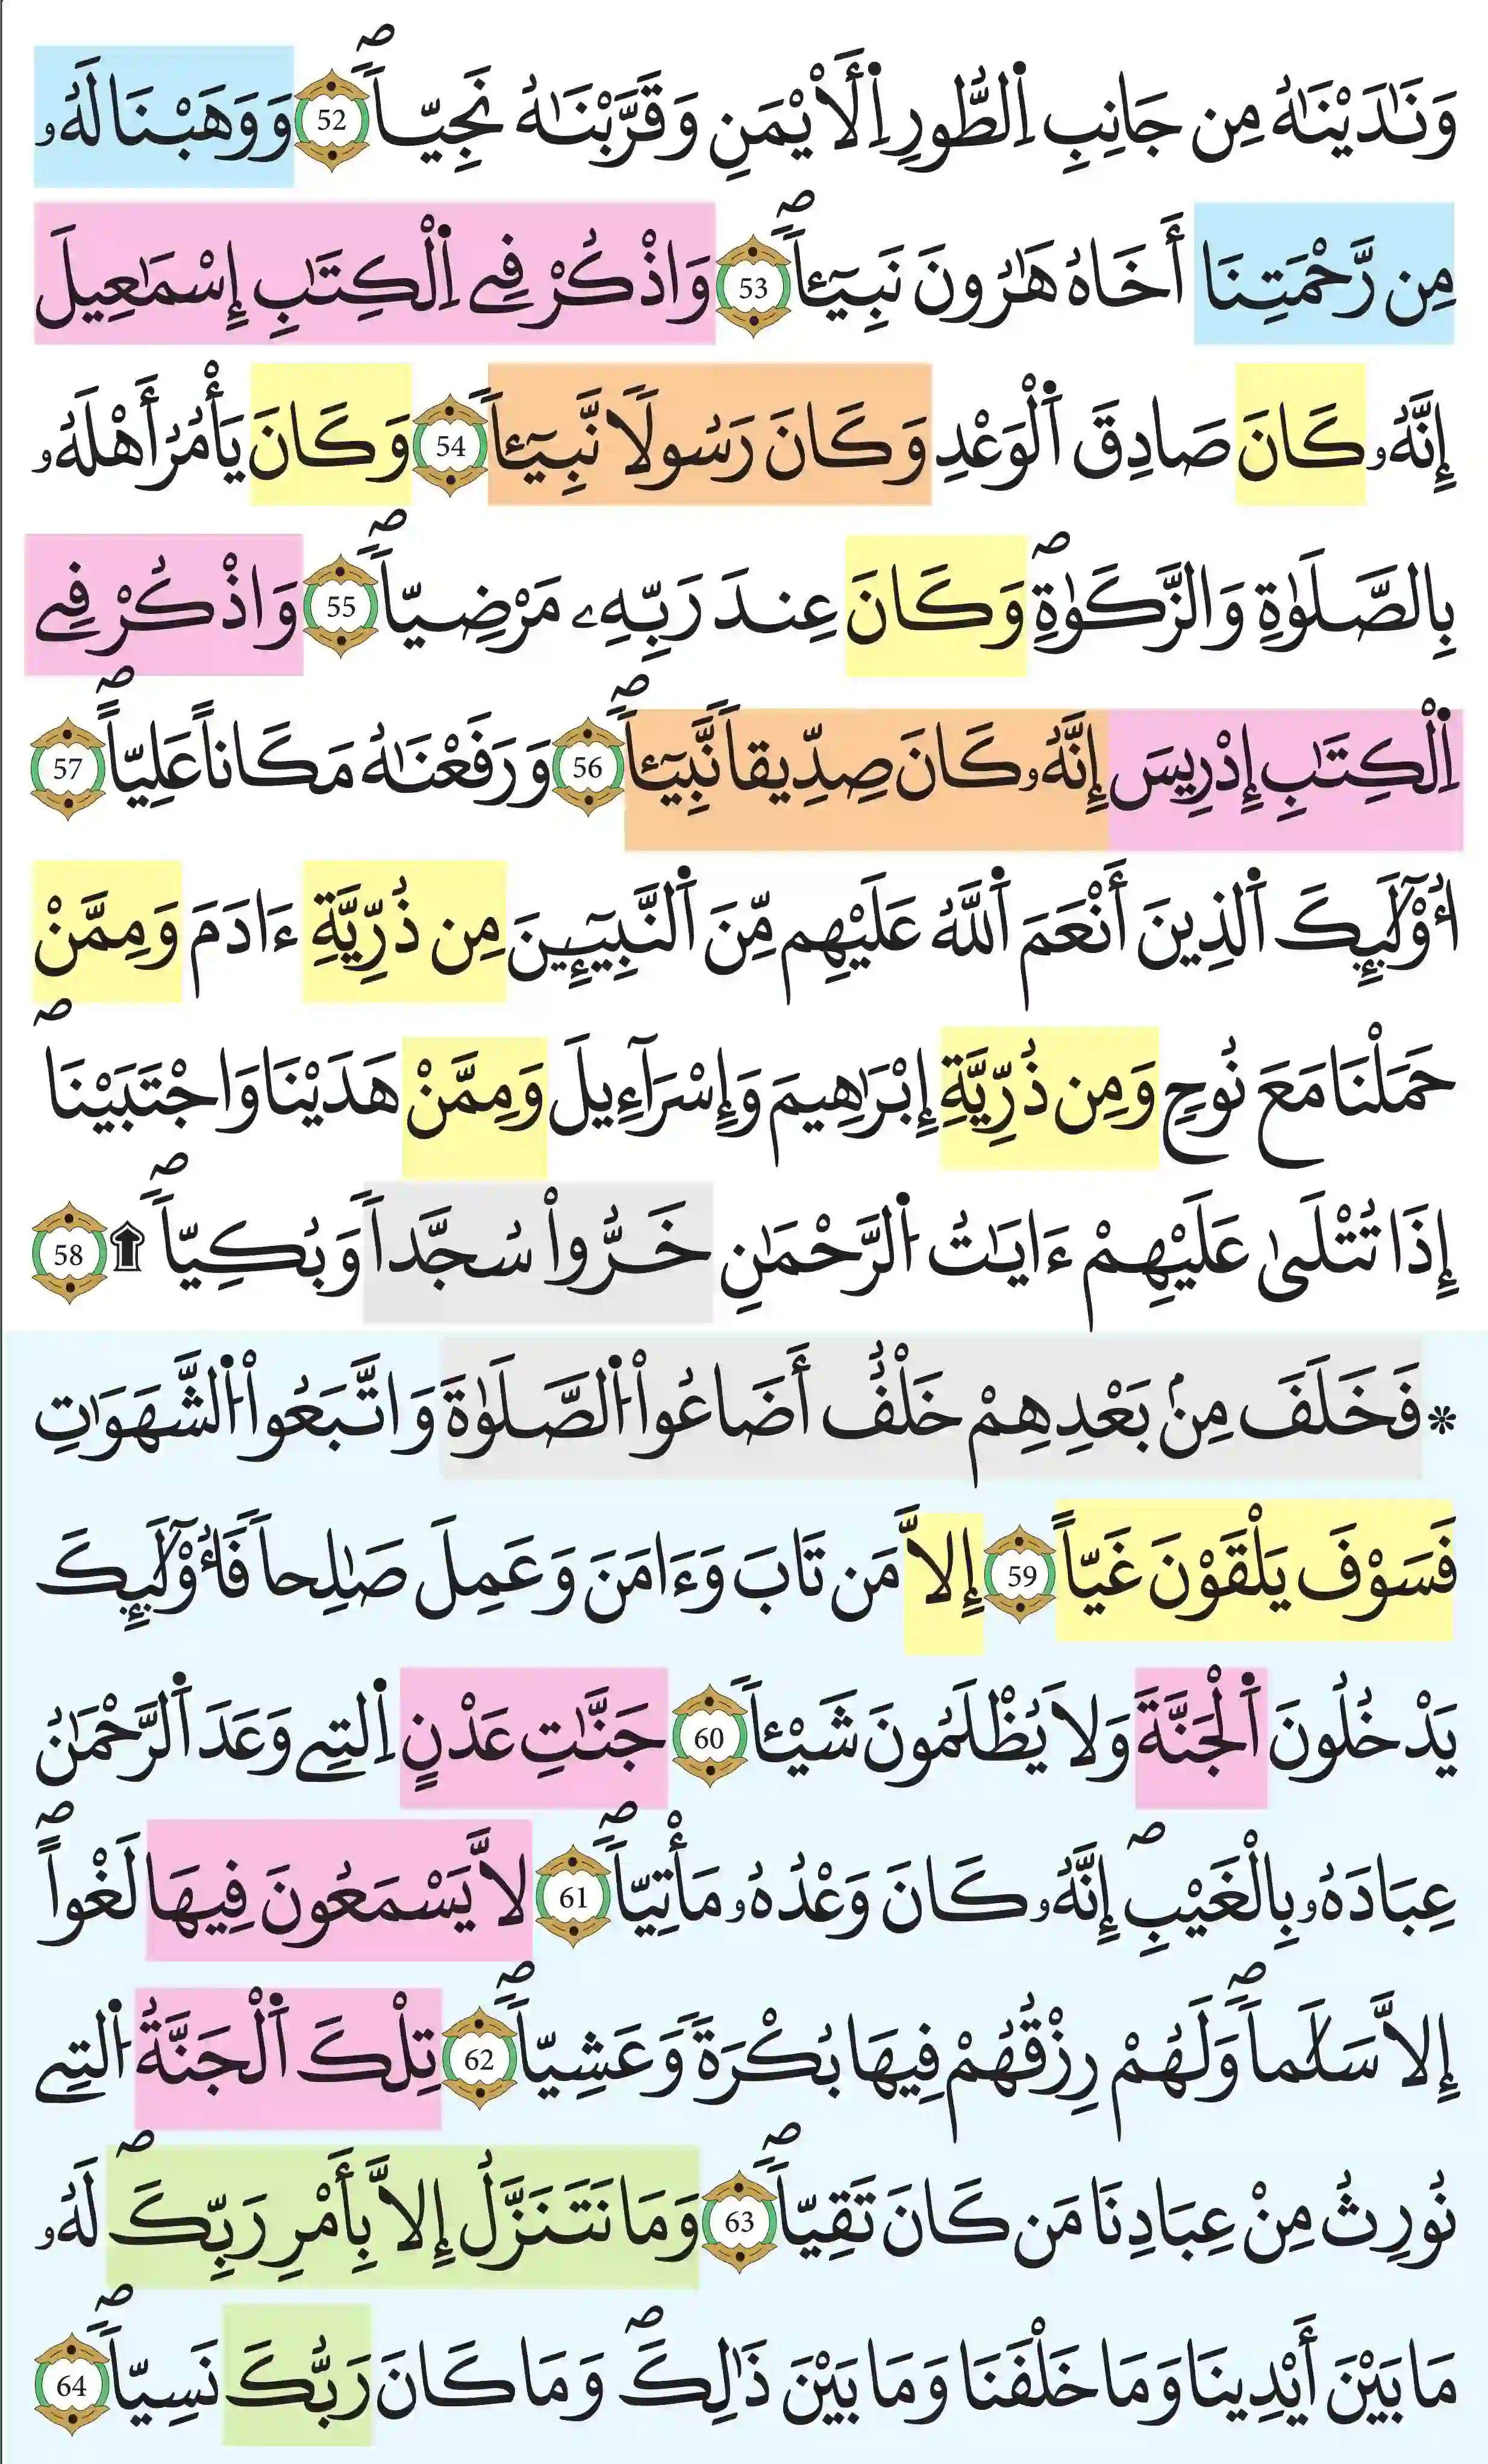 وَنَٰدَيْنَٰهُ مِن جَانِبِ اِ۬لطُّورِ اِ۬لَايْمَنِ وَقَرَّبْنَٰهُ نَجِيّاٗۖ 52 وَوَهَبْنَا لَهُۥ
مِن رَّحْمَتِنَا أَخَاهُ هَٰرُونَ نَبِيٓـٔاٗۖ 53 وَاذْكُرْ فِے اِ۬لْكِتَٰبِ إِسْمَٰعِيلَ
إِنَّهُۥ كَانَ صَادِقَ اَ۬لْوَعْدِ وَكَانَ رَسُولاٗ نَّبِيٓـٔاٗ 54 وَكَانَ يَأْمُرُ أَهْلَهُۥ
بِالصَّلَوٰةِ وَالزَّكَوٰةِۖ وَكَانَ عِندَ رَبِّهِۦ مَرْضِيّاٗۖ 55 وَاذْكُرْ فِے
اِ۬لْكِتَٰبِ إِدْرِيسَ إِنَّهُۥ كَانَ صِدِّيقاٗ نَّبِيٓـٔاٗۖ 56 وَرَفَعْنَٰهُ مَكَاناً عَلِيّاًۖ 57
اُ۟وْلَٰٓئِكَ اَ۬لذِينَ أَنْعَمَ اَ۬للَّهُ عَلَيْهِم مِّنَ اَ۬لنَّبِيٓـِٕينَ مِن ذُرِّيَّةِ ءَادَمَ وَمِمَّنْ
حَمَلْنَا مَعَ نُوحٖ وَمِن ذُرِّيَّةِ إِبْرَٰهِيمَ وَإِسْرَآءِيلَ وَمِمَّنْ هَدَيْنَا وَاجْتَبَيْنَاۖ
إِذَا تُتْلَىٰ عَلَيْهِمْ ءَايَٰتُ اُ۬لرَّحْمَٰنِ خَرُّواْ سُجَّداٗ وَبُكِيّاٗۖ ۩ 58
۞ فَخَلَفَ مِنۢ بَعْدِهِمْ خَلْفٌ أَضَاعُواْ اُ۬لصَّلَوٰةَ وَاتَّبَعُواْ اُ۬لشَّهَوَٰتِ
فَسَوْفَ يَلْقَوْنَ غَيّاً 59 إِلاَّ مَن تَابَ وَءَامَنَ وَعَمِلَ صَٰلِحاٗ فَأُوْلَٰٓئِكَ
يَدْخُلُونَ اَ۬لْجَنَّةَ وَلاَ يُظْلَمُونَ شَيْـٔاٗ 60 جَنَّٰتِ عَدْنٍ اِ۬لتِے وَعَدَ اَ۬لرَّحْمَٰنُ
عِبَادَهُۥ بِالْغَيْبِۖ إِنَّهُۥ كَانَ وَعْدُهُۥ مَأْتِيّاٗۖ 61 لاَّ يَسْمَعُونَ فِيهَا لَغْواًۖ
إِلاَّ سَلَٰماٗۖ وَلَهُمْ رِزْقُهُمْ فِيهَا بُكْرَةٗ وَعَشِيّاٗۖ 62 تِلْكَ اَ۬لْجَنَّةُ اُ۬لتِے
نُورِثُ مِنْ عِبَادِنَا مَن كَانَ تَقِيّاٗۖ 63 وَمَا نَتَنَزَّلُ إِلاَّ بِأَمْرِ رَبِّكَۖ لَهُۥ
مَا بَيْنَ أَيْدِينَا وَمَا خَلْفَنَا وَمَا بَيْنَ ذَٰلِكَۖ وَمَا كَانَ رَبُّكَ نَسِيّاٗۖ 64